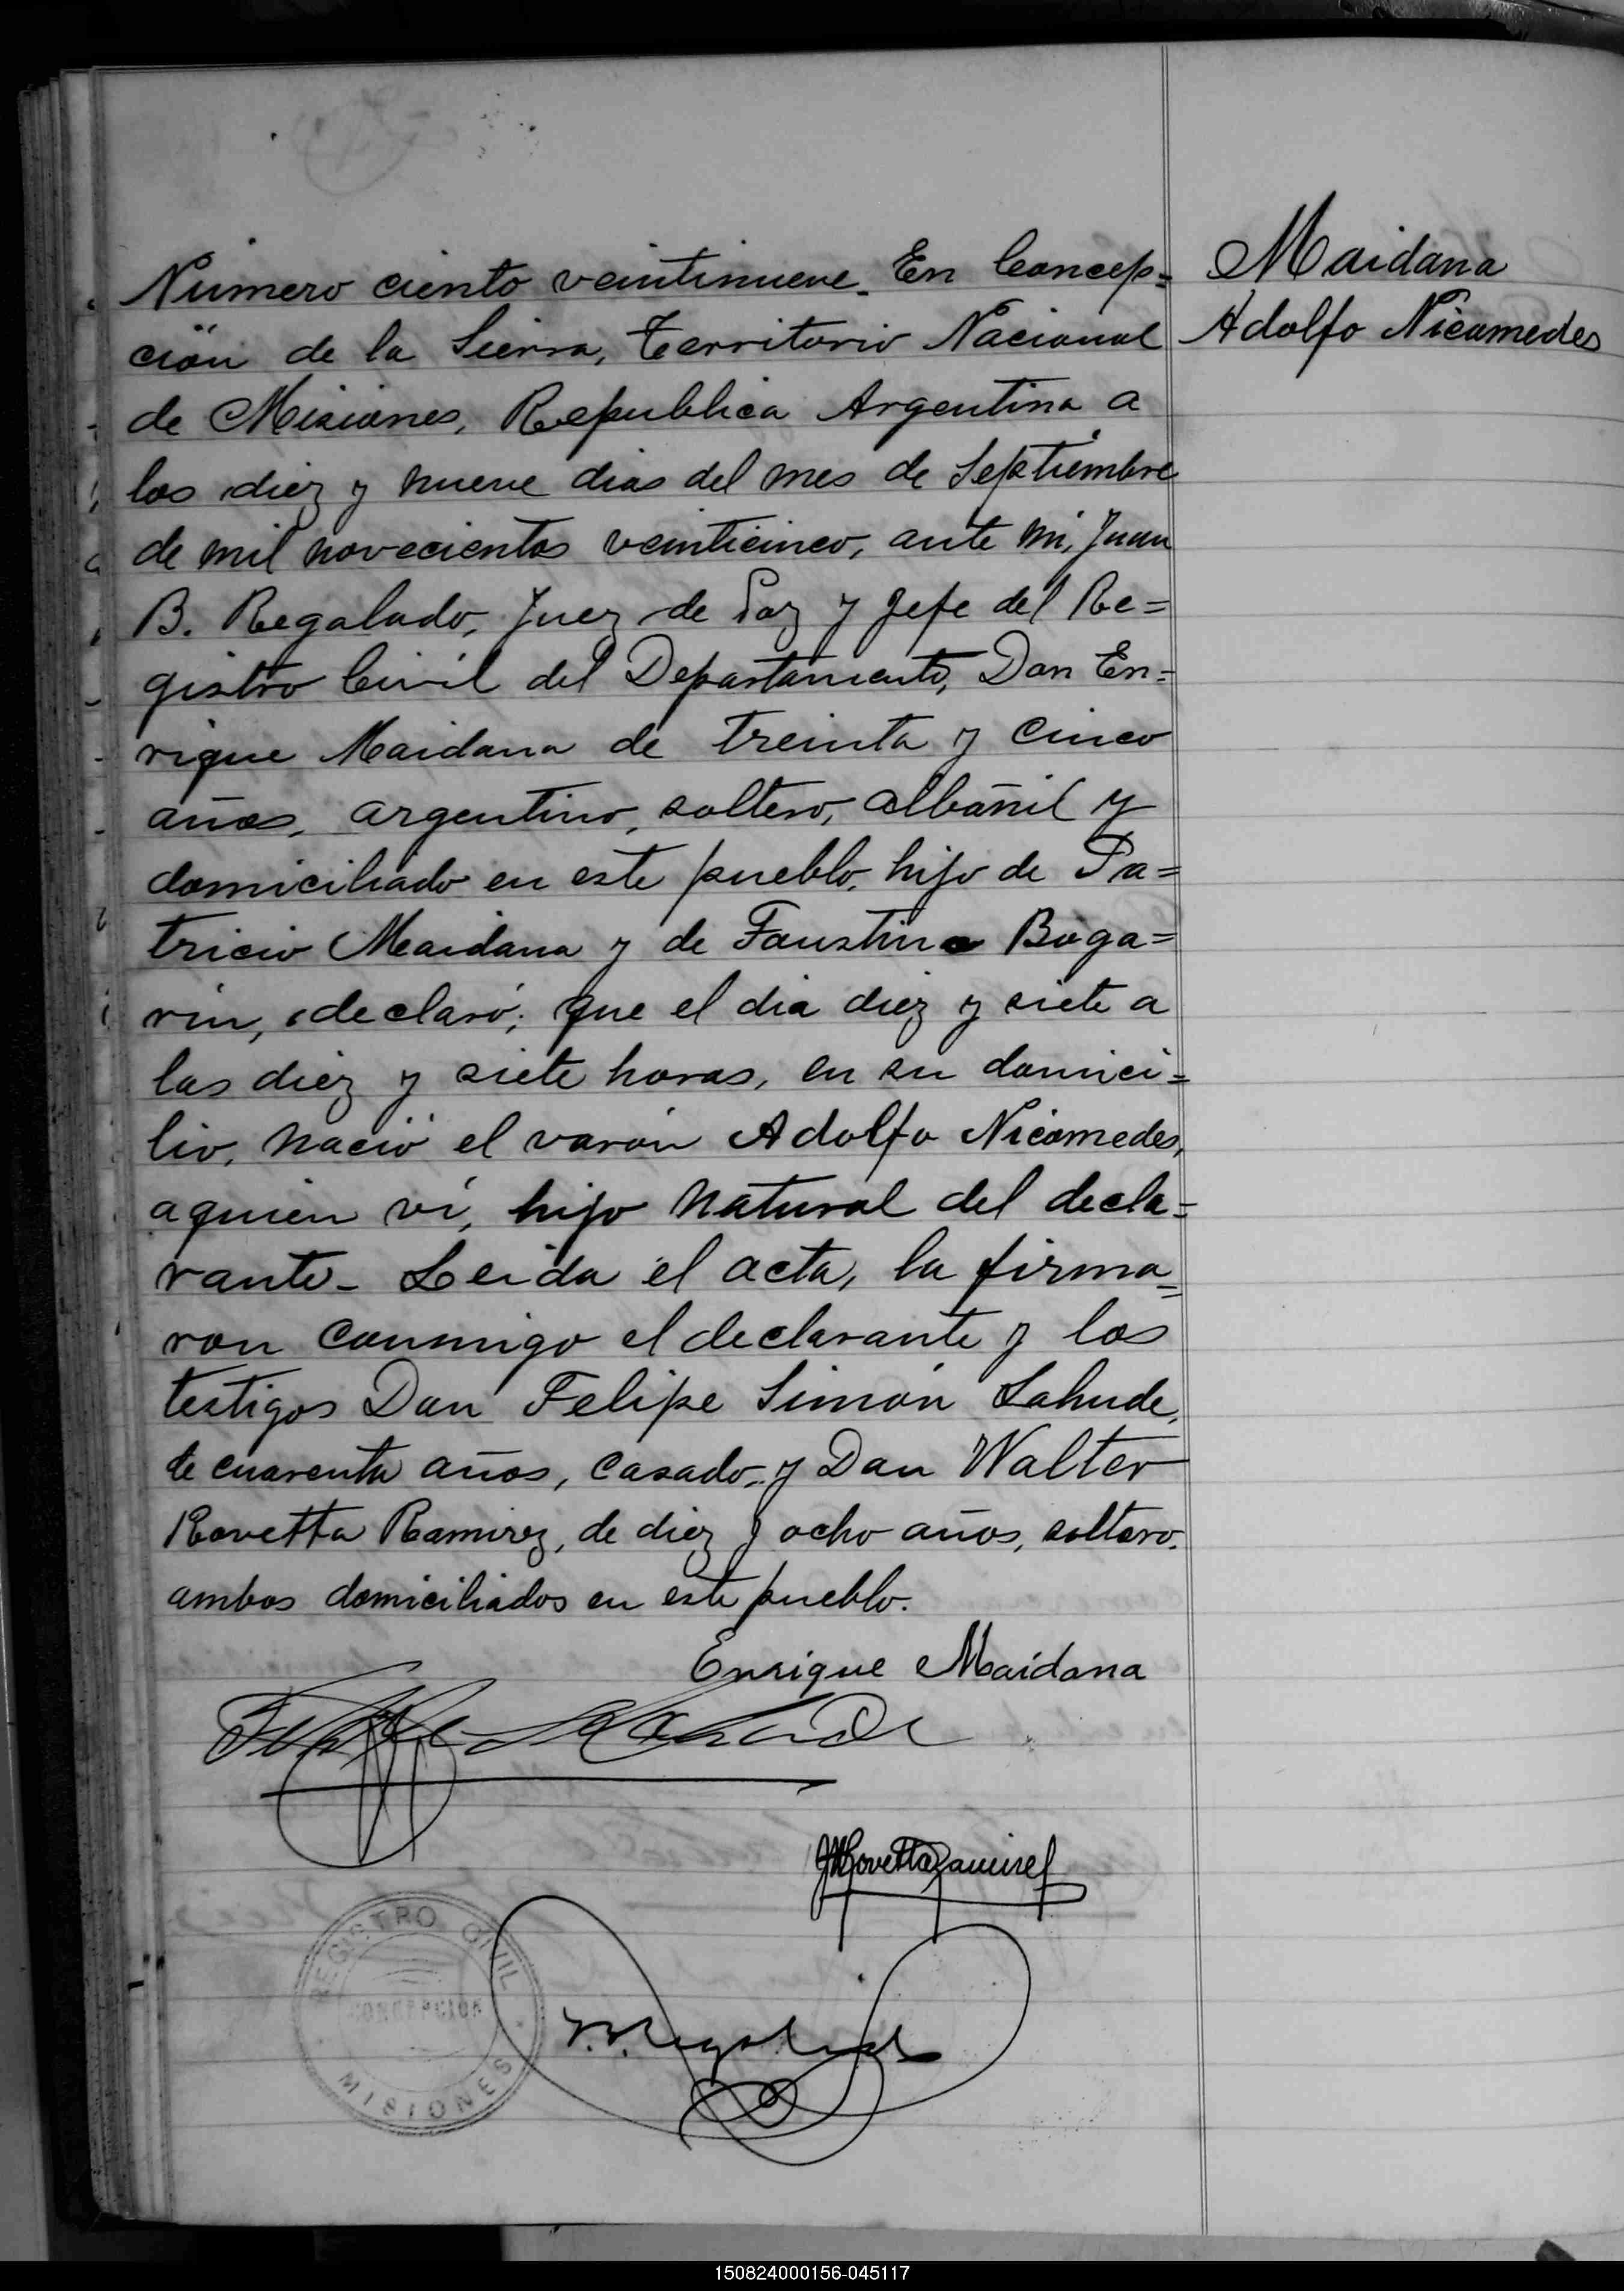 Maidana
Adolfo Nicomedes
Número ciento veintinueve. En Concep=
ción de la Sierra, Territorio Nacional
de Misiones, Republica Argentina, a
los diez y nueve dias del mes de Septiembre
de mil novecientos veinticinco, ante mi, Juan
B. Regalado, Juez de Paz y Jefe del Re=
gistro Civil del Departamento, Don En=
rique Maidana de treinta y cinco
años, argentino, soltero, albañil y
domiciliado en este pueblo, hijo de Pa=
tricio Maidana y de Faustina Boga=
rin, declaró; que el dia diez y siete a
las diez y siete horas, en su domici=
lio, nació el varón Adolfo Nicomedes,
aquien ví, hijo natural del decla=
rante- Leida el acta, la firma=
ron conmigo el declarante y los
testigos Don Felipe Simón Lahude,
de cuarenta años, casado, y Don Walter
Rovetta Ramirez, de diez y ocho años, soltero,
ambos domiciliados en este pueblo.
Enrique Maidana
Felipe S Lahude
Rovetta Ramirez
J.B. Regalado
REGISTRO CIVIL
CONCEPCION
MISIONES
150824000156-045117